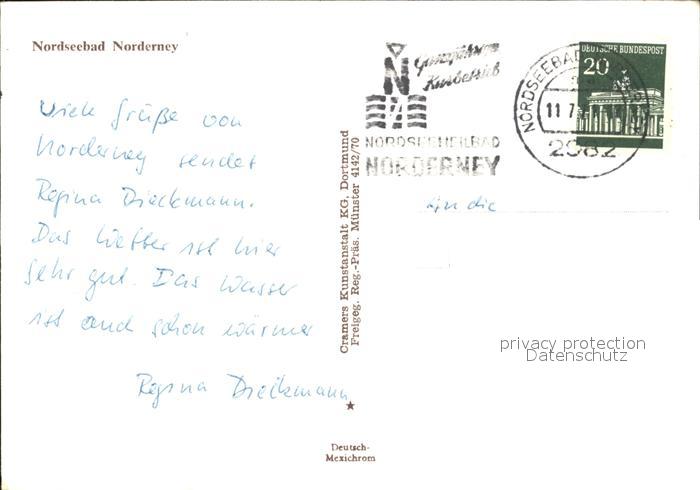 Nordseebad Norderney
Viele Grüße von
Norderney sendet
Regina Dieckmann.
Das Wetter ist hier
sehr gut. Das Wasser
ist auch schon wärmer
Regina Dieckmann
Cramers Kunstanstalt KG, Dortmund
Freigeg. Reg.-Präs. Münster 4142/70
Deutsch-
Mexichrom
Ganzjährig
Kurbetrieb
N
NORDSEEHEILBAD
NORDERNEY
NORDSEEBAD
11.7.
2982
DEUTSCHE BUNDESPOST
20
An die
privacy protection
Datenschutz